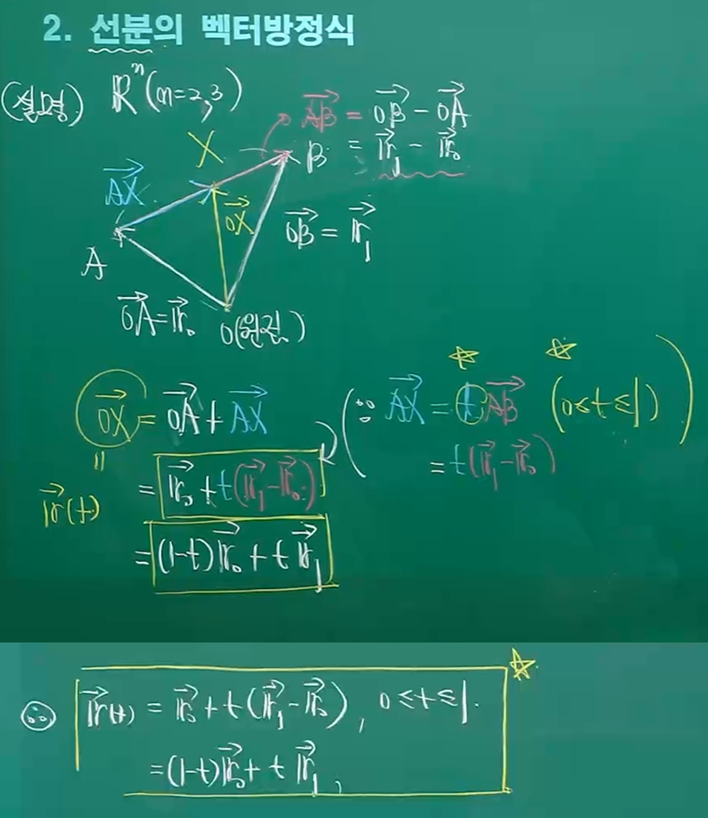 2. 선분의 벡터방정식
(설명) ℝⁿ (n=2,3)
AB⃗ = OB⃗ - OA⃗
= r⃗₁ - r⃗₀
X
B
AX⃗
OX⃗
OB⃗ = r⃗₁
A
OA⃗ = r⃗₀
O(원점)
OX⃗ = OA⃗ + AX⃗ (∵ AX⃗ = t AB⃗ (0≤t≤1))
= r⃗₀ + t(r⃗₁ - r⃗₀) = t(r⃗₁ - r⃗₀)
" r⃗(t)
= (1-t)r⃗₀ + t r⃗₁
∴ r⃗(t) = r⃗₀ + t(r⃗₁ - r⃗₀), 0≤t≤1.
= (1-t)r⃗₀ + t r⃗₁,